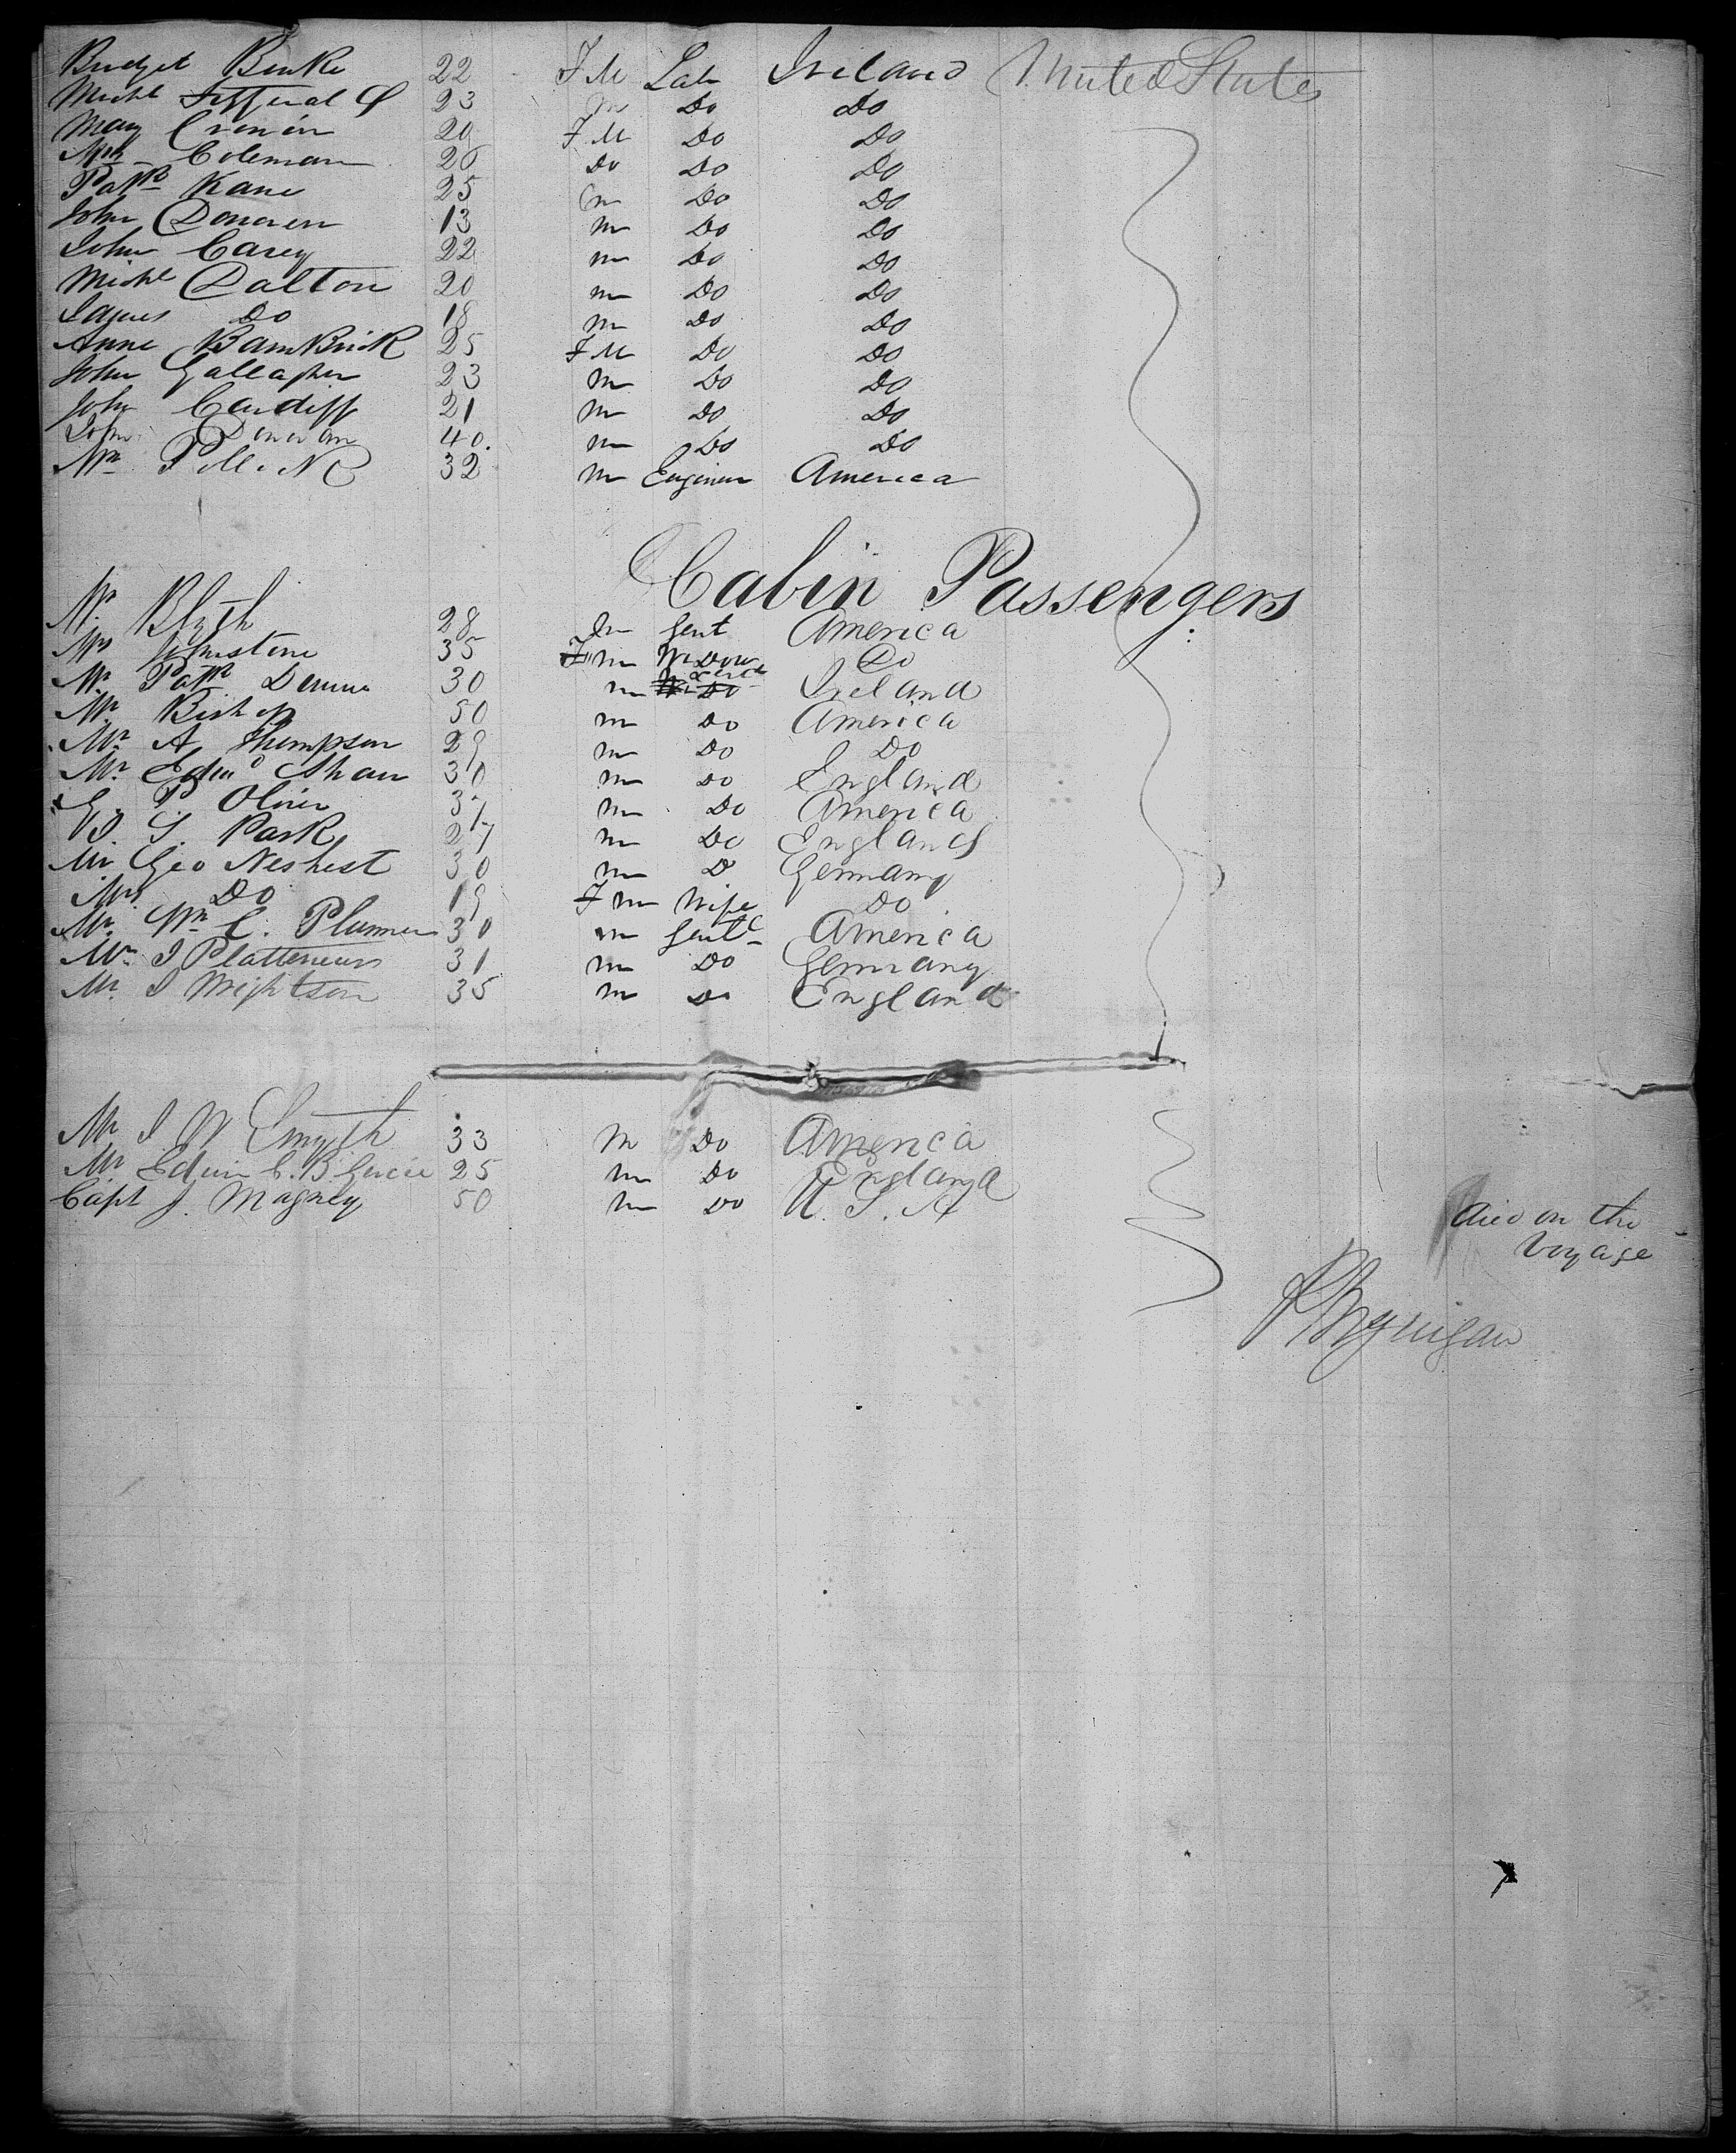 Bridget Burke 22 F M Lab Ireland United States
Michl 23 m Do Do
Mary Cronin 20 F M Do Do
Mrs Coleman 26 Do Do Do
Patk Kane 25 m Do Do
John Donoven 13 m Do Do
John Carey 22 m Do Do
Michl Dalton 20 m Do Do
James Do 18 m Do Do
Anne BamBrick 25 F M Do Do
John Gallagher 23 m Do Do
John Cardiff 21 m Do Do
John Donovan 40. m Do Do
Wm 32 m Engineer America
Cabin Passengers
Mr Blyth 28 m Gent America
Mrs Johnstone 35 F m Widow Do
Mr Patk 30 m Ireland
Mr Bishop 50 m Do America
Mr A Thompson 29 m Do Do
Mr Edwd Shaw 30 m Do England
E. P. Olivier 37 m Do America
W. S. Park 27 m Do England
Mr Geo Neshest 30 m D Germany
Mrs Do 19 F m Wife Do
Mr Wm C. Plummer 30 m Gent America
Mr I Platteneurs 31 m Do Germany
Mr I Wrightson 35 m Do England
Mr I W Smyth 33 M Do America
Mr Edwin C. B. 25 m Do England
Capt J. Magney 50 m Do U. S. A
Died on the
Voyage